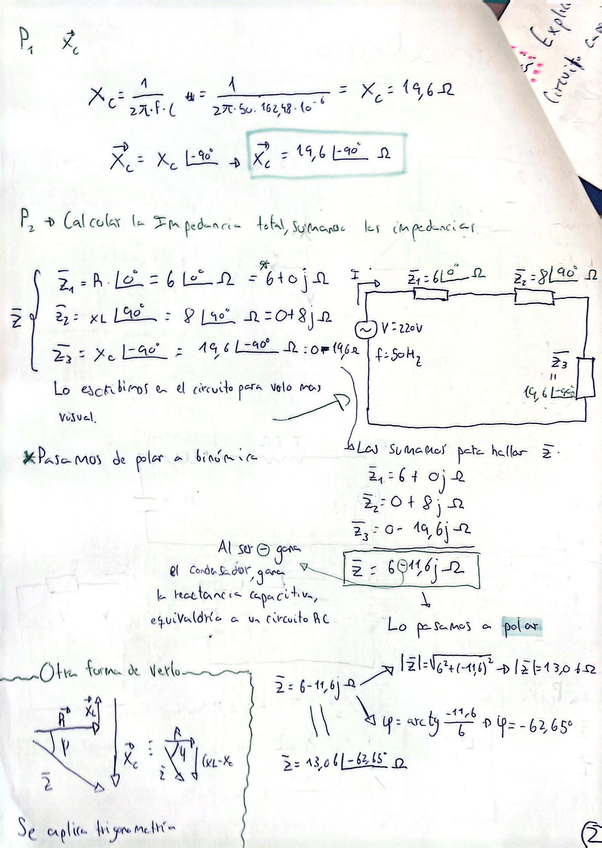 P₁ X⃗c
Explic
Circuito en se
Xc = 1/(2π·f·C) = 1/(2π·50·162,48·10⁻⁶) = Xc = 19,6 Ω
X⃗c = Xc ∠-90° → X⃗c = 19,6 ∠-90° Ω
P₂ → Calcular la Impedancia total, sumando las impedancias.
Z̄
Z̄₁ = R·∠0° = 6 ∠0° Ω = *6+0j Ω
Z̄₂ = XL ∠90° = 8 ∠90° Ω = 0+8j Ω
Z̄₃ = Xc ∠-90° = 19,6 ∠-90° Ω = 0-19,6 Ω
Lo escribimos en el circuito para velo mas
visual.
I
Z̄₁ = 6∠0° Ω
Z̄₂ = 8∠90° Ω
V = 220V
f = 50Hz
Z̄₃
=
19,6 ∠-90°
*Pasamos de polar a binómica
Las sumamos para hallar Z̄.
Z̄₁ = 6 + 0j Ω
Z̄₂ = 0 + 8j Ω
Z̄₃ = 0 - 19,6j Ω
Z̄ = 6-11,6j Ω
Al ser ⊖ gana
el condesador, gana
la reactancia capacitiva,
equivaldría a un circuito RC
Lo pasamos a polar
Otra forma de verlo
R⃗ X⃗L
φ
Z̄
X⃗c
≡
R
φ
Z̄
(XL-Xc
Se aplica trigonometría
Z̄ = 6-11,6j Ω
|Z̄| = √(6²+(-11,6)²) → |Z̄| = 13,06 Ω
φ = arctg -11,6/6 → φ = -62,65°
||
Z̄ = 13,06 ∠-62,65° Ω
2